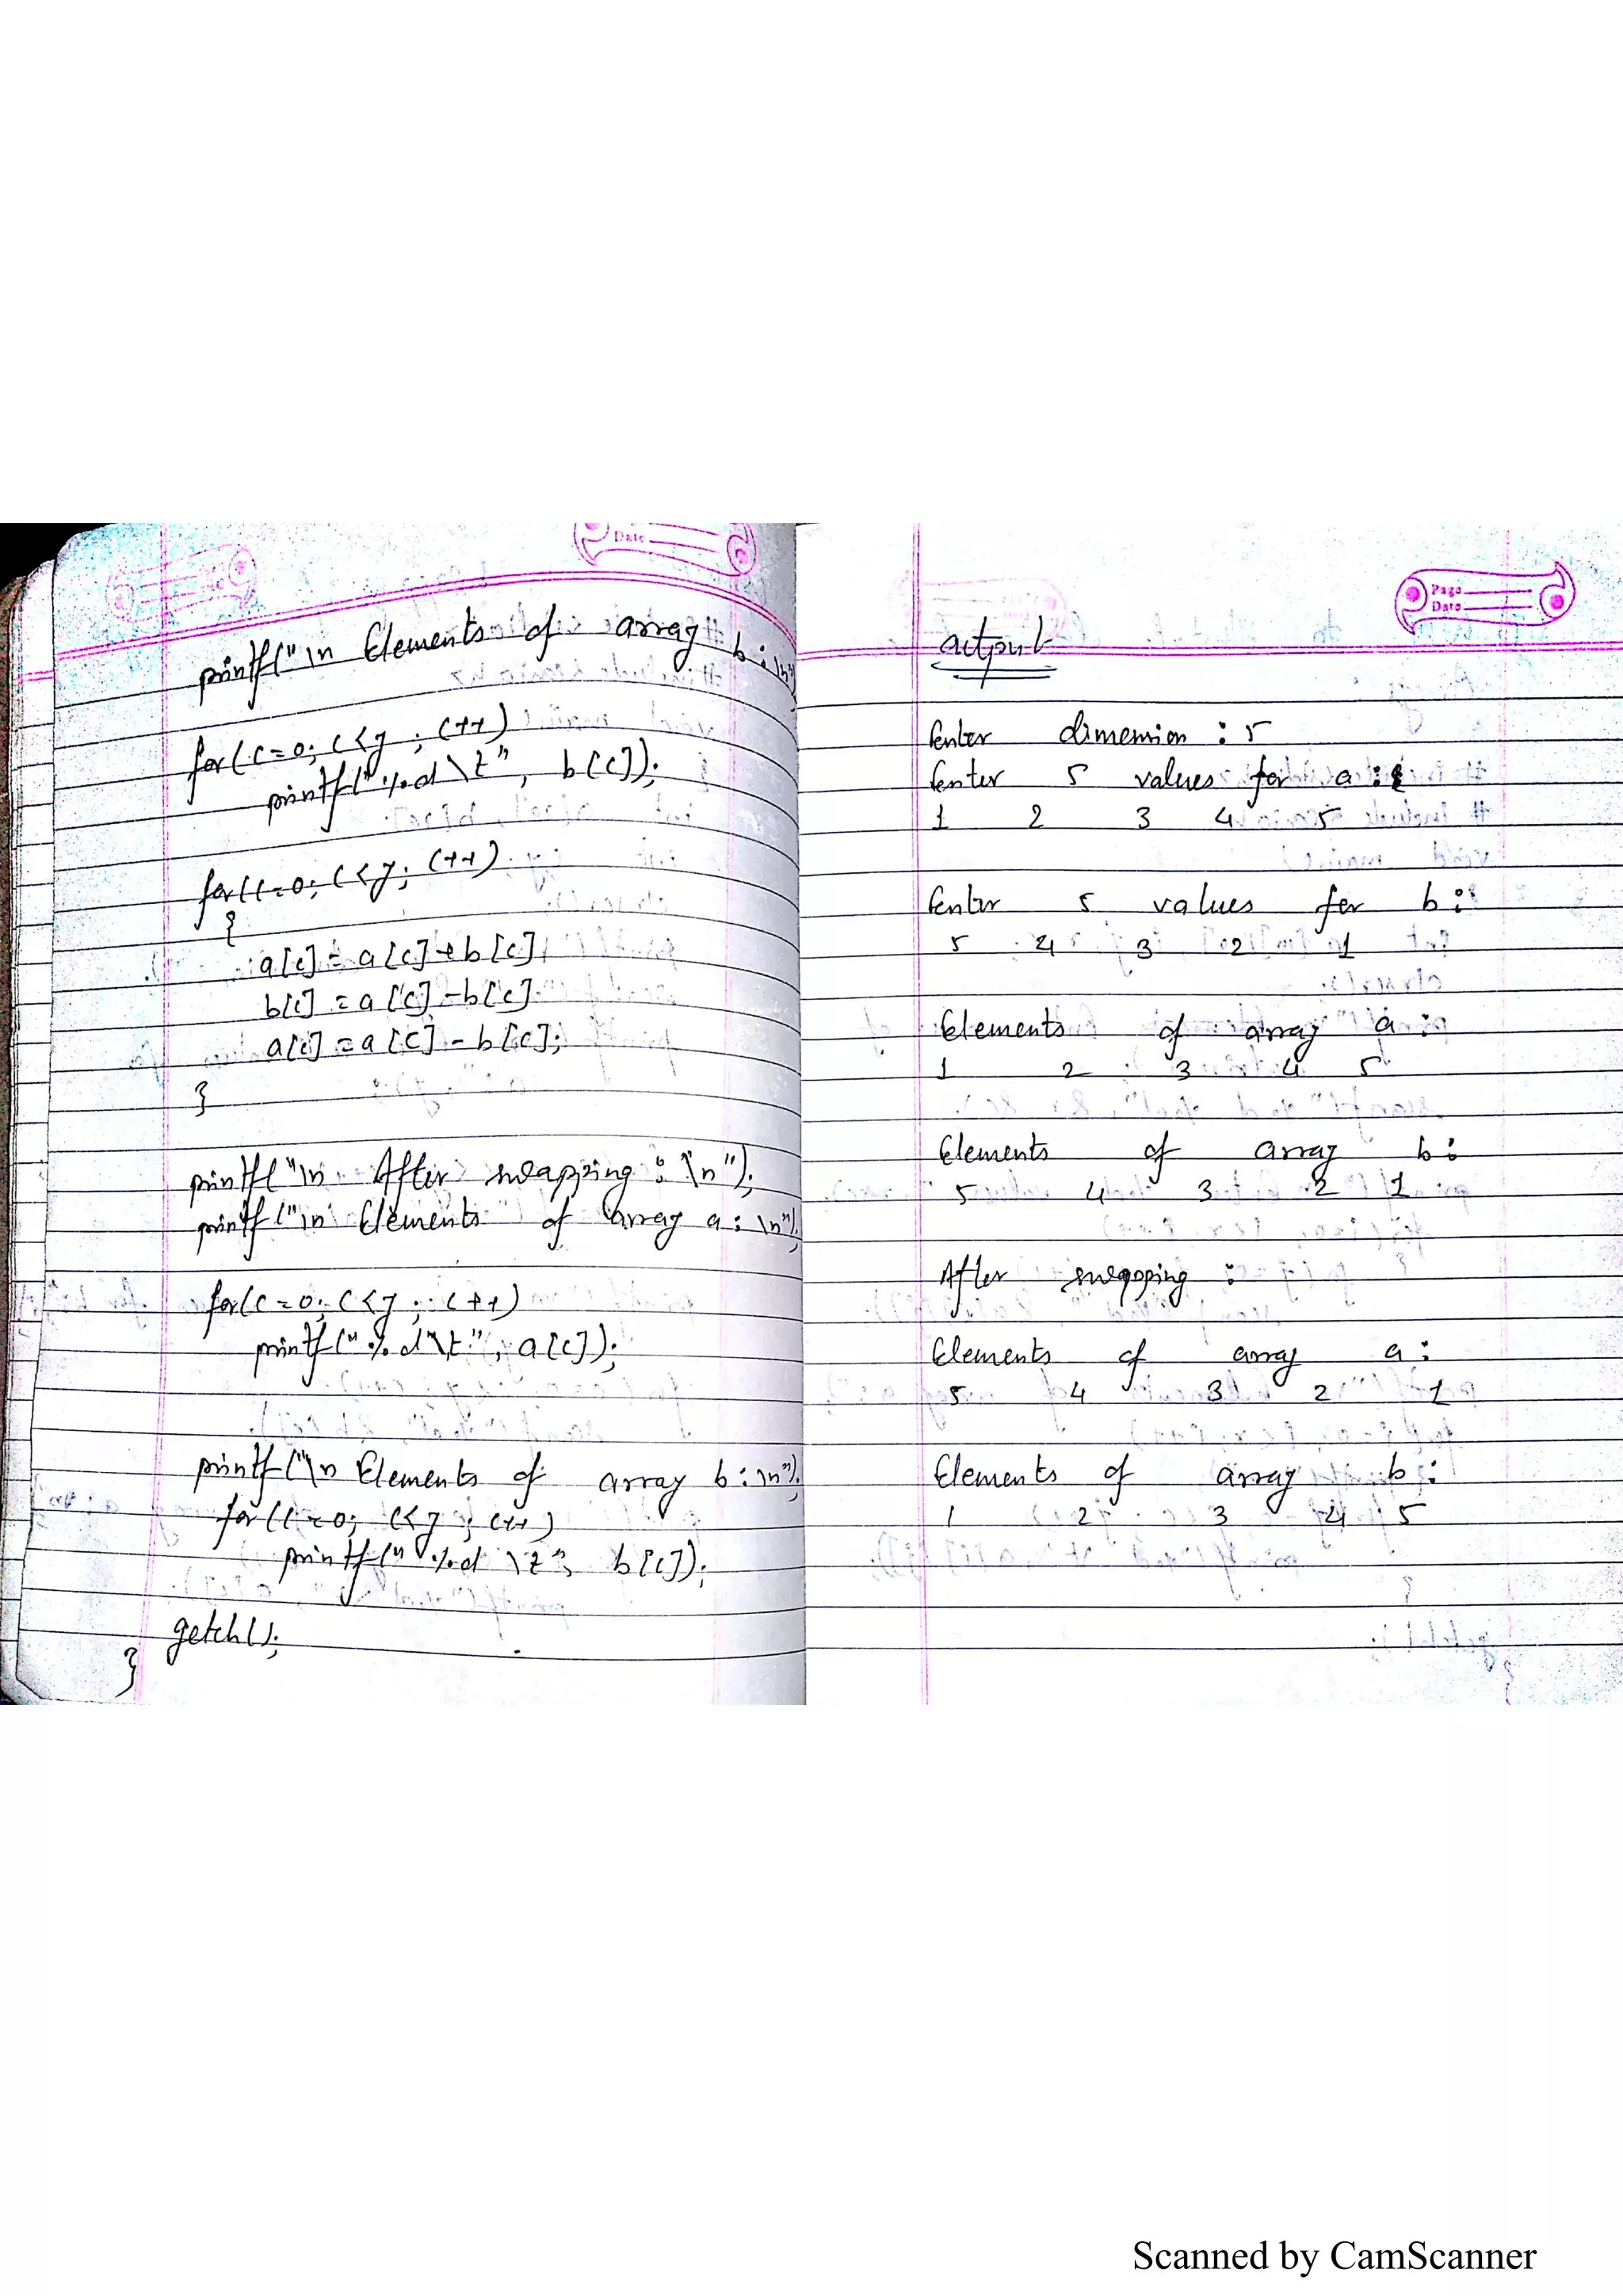 Date
printf("\n Elements of array b:\n")
for(c=0; c<y; c++)
printf("%d\t", b[c]);
for(c=0; c<y; c++)
{
a[c] = a[c]+b[c];
b[c] = a[c]-b[c]
a[c] = a[c] - b[c];
}
printf("\n After swapping : \n");
printf("\n Elements of array a: \n");
for(c=0; c<y; c++)
printf("%d\t", a[c]);
printf("\n Elements of array b: \n");
for(c=0; c<y; c++)
printf("%d \t", b[c]);
getch();
}
Page
Date
output
Enter dimension : 5
Enter 5 values for a :
1 2 3 4 5
Enter 5 values for b :
5 4 3 2 1
Elements of array a :
1 2 3 4 5
Elements of array b :
5 4 3 2 1
After swapping :
Elements of array a :
5 4 3 2 1
Elements of array b :
1 2 3 4 5
Scanned by CamScanner